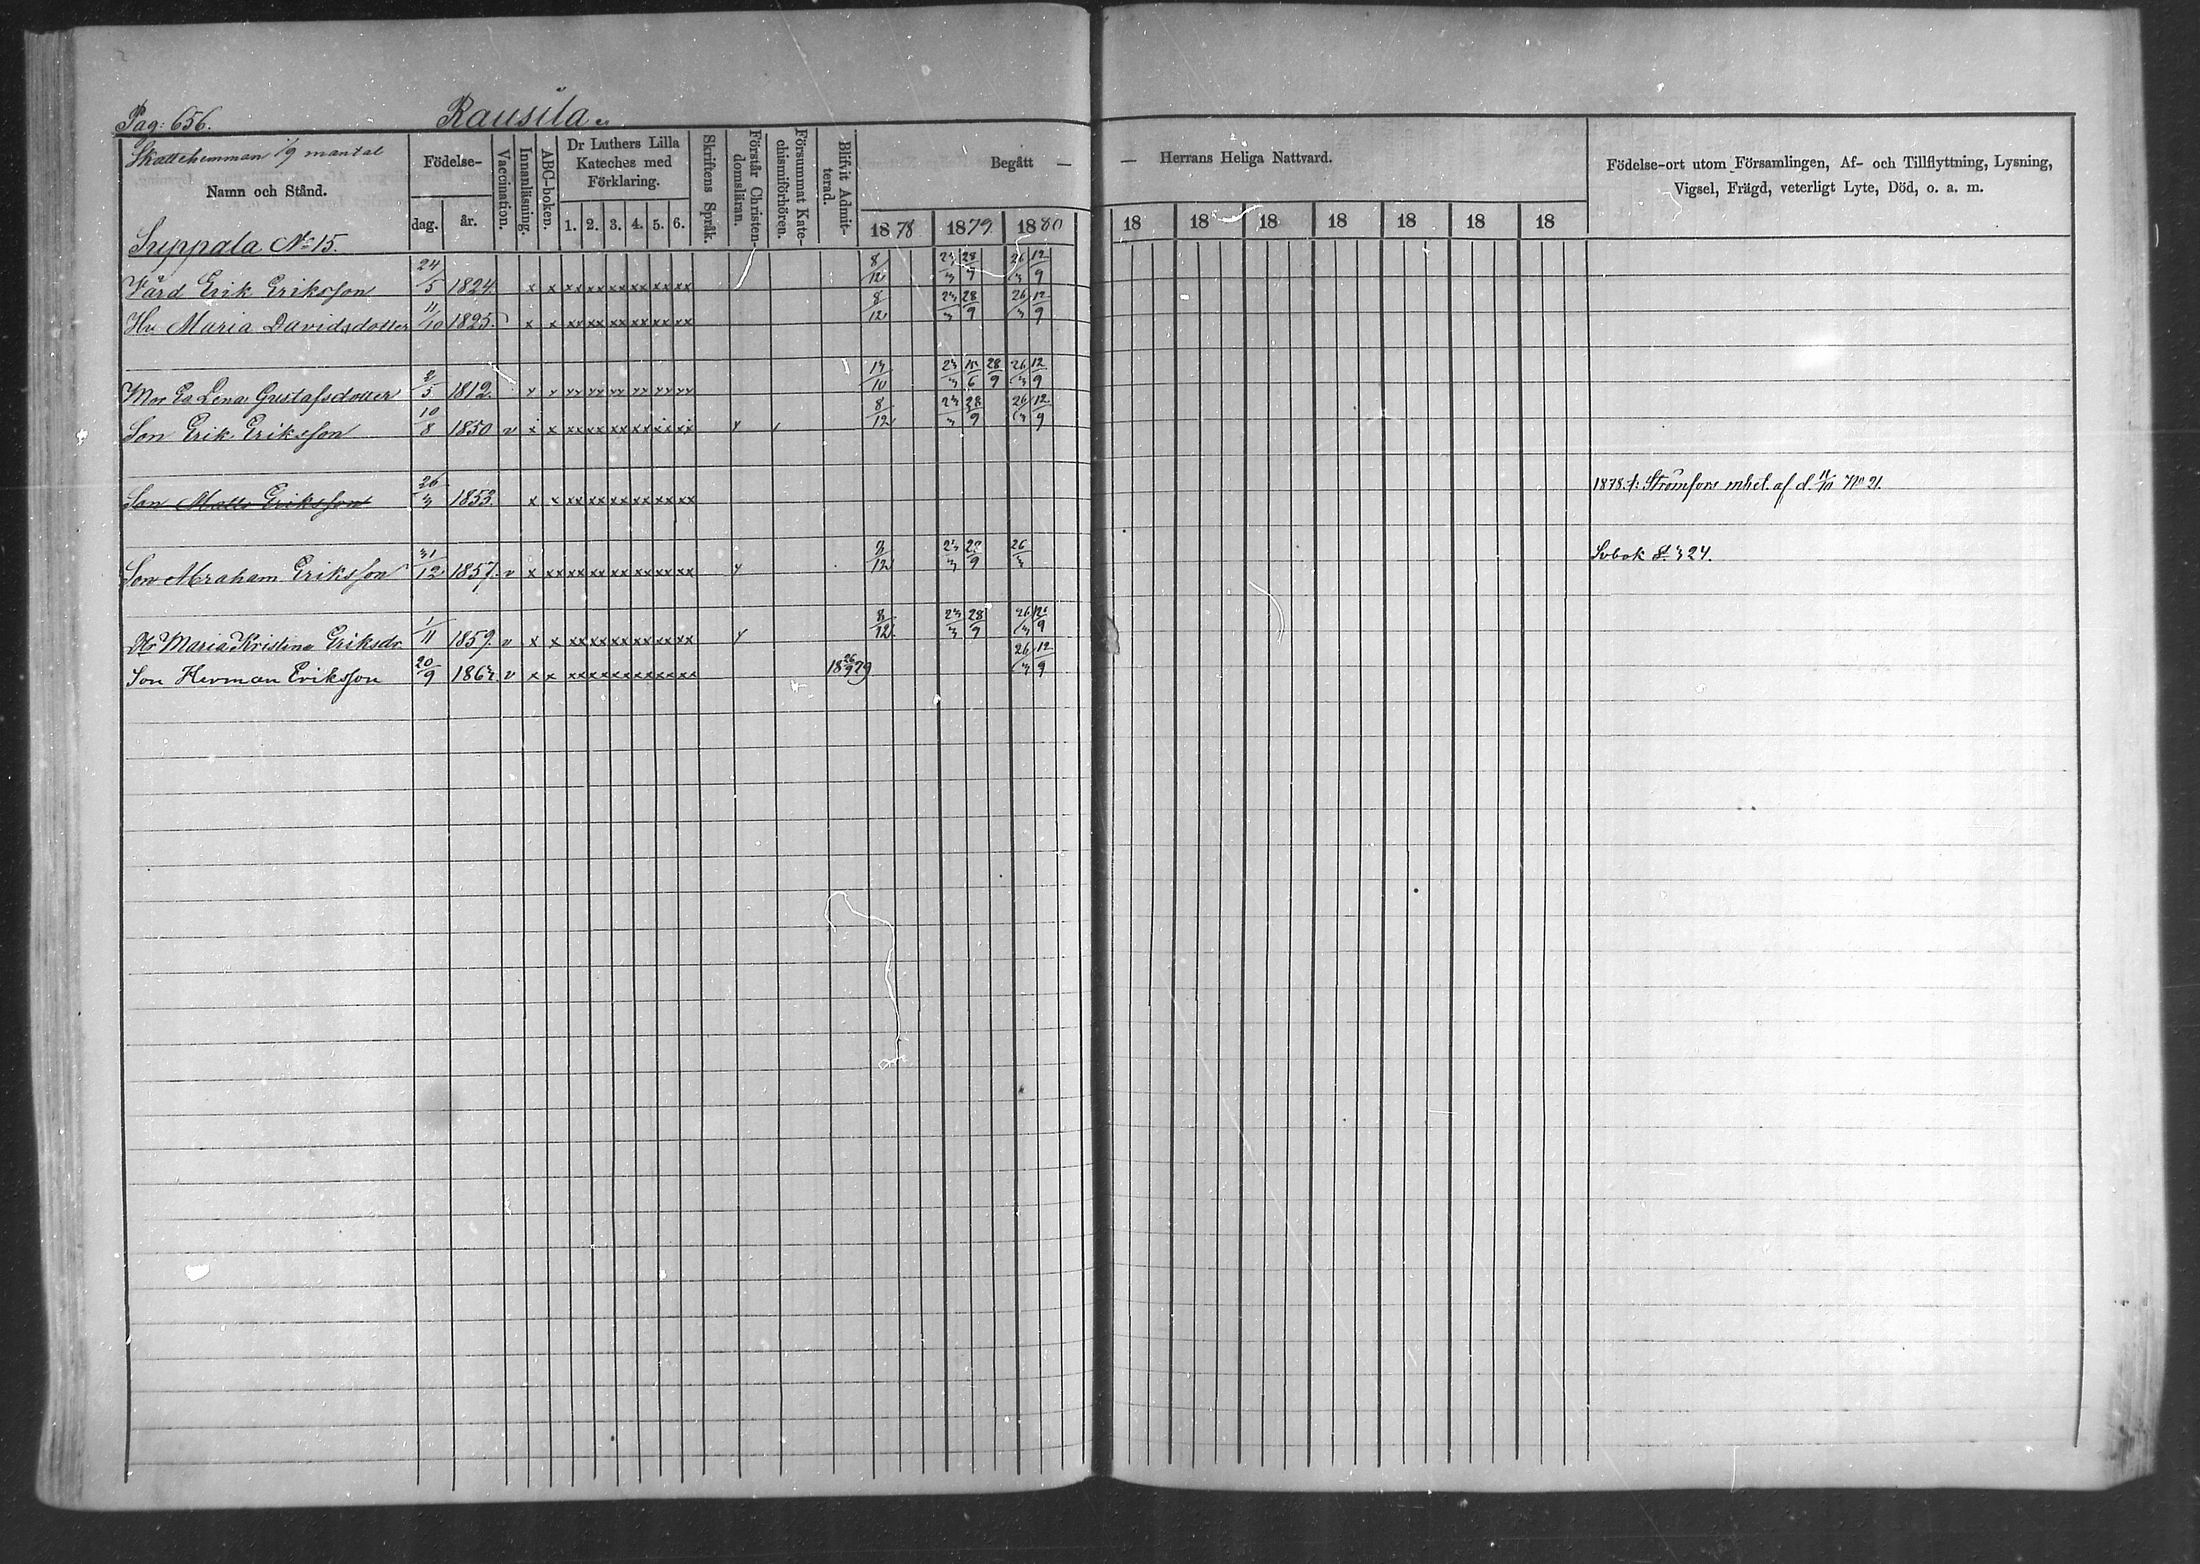 Pag: 656. Rausila
Skattehemman 1/9 mantal
Namn och Stånd.
Födelse-
dag. år.
Vaccination.
Innanläsning.
ABC-boken.
Dr Luthers Lilla
Kateches med
Förklaring.
1. 2. 3. 4. 5. 6.
Skriftens Språk.
Förstår Christen-
domsläran.
Försummat Kate-
chismiförhören.
Blifvit Admit-
terad.
Begått — — Herrans Heliga Nattvard.
1878 1879 1880 18 18 18 18 18 18 18
Födelse-ort utom Församlingen, Af- och Tillflyttning, Lysning,
Vigsel, Frägd, veterligt Lyte, Död, o. a. m.
Suppala No 15.
Vård Erik Eriksson 24/5 1824. x x xx xx xx xx xx xx 8/12 23/3 28/9 26/3 12/9
Hu Maria Davidsdotter 11/10 1825. x x xx xx xx xx xx xx 8/12 23/3 28/9 26/3 12/9
Mor Ea Lena Gustafsdotter 2/5 1812. x x xx xx xx xx xx xx 13/10 23/3 15/6 28/9 26/3 12/9
Son Erik Eriksson 10/8 1850 v x x xx xx xx xx xx xx 8/12 23/3 28/9 26/3 12/9
Son Matts Eriksson 26/3 1853. x x xx xx xx xx xx xx 1878 t: Strömfors mbet. af d. 11/11 No 21.
Son Abraham Eriksson 31/12 1857. v x xx xx xx xx xx xx xx 8/12 23/3 28/9 26/3 Sobok S. 324.
Dr Maria Kristina Eriksdr 1/11 1859. v x x xx xx xx xx xx xx 8/12 23/3 28/9 26/3 12/9
Son Herman Eriksson 20/9 1863. v x x xx xx xx xx xx xx 18 26/9 79 26/3 12/9